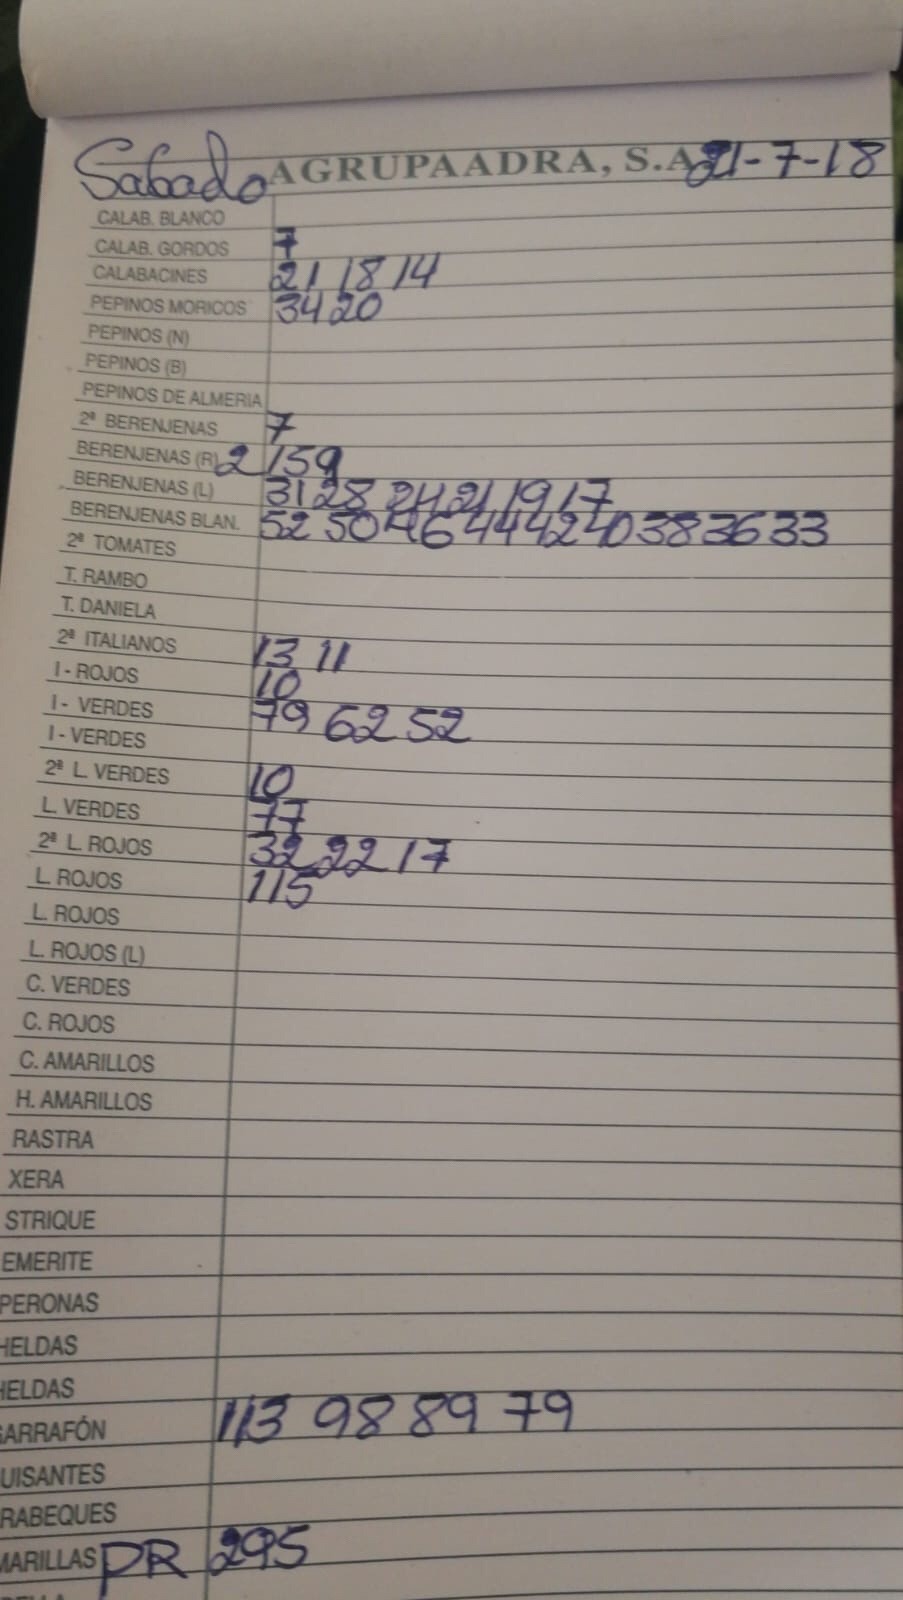 Sabado AGRUPAADRA, S.A. 21-7-18
CALAB. BLANCO
CALAB. GORDOS 7
CALABACINES 21 18 14
PEPINOS MORICOS 34 20
PEPINOS (N)
PEPINOS (B)
PEPINOS DE ALMERIA
2ª BERENJENAS 7
BERENJENAS (R) 2 159
BERENJENAS (L) 31 28 24 21 19 17
BERENJENAS BLAN. 52 50 46 44 42 40 38 36 33
2ª TOMATES
T. RAMBO
T. DANIELA
2ª ITALIANOS 13 11
I - ROJOS 10
I - VERDES 79 62 52
I - VERDES
2ª L. VERDES 10
L. VERDES 77
2ª L. ROJOS 32 22 17
L. ROJOS 115
L. ROJOS
L. ROJOS (L)
C. VERDES
C. ROJOS
C. AMARILLOS
H. AMARILLOS
RASTRA
XERA
STRIQUE
EMERITE
PERONAS
HELDAS
HELDAS
GARRAFÓN 113 98 89 79
UISANTES
RABEQUES
MARILLAS PR 295